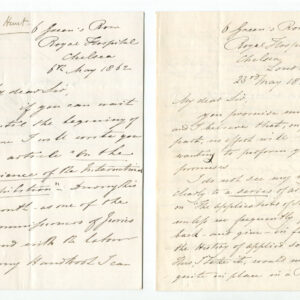 Hunt.
6 Green's Row
Royal Hospital
Chelsea
6th May 1862
My dear Sir,
if you can wait
until the beginning of
I will write you
article "On the
Science of the International
Exhibition".
month. as one of the
Commissioners of Juries
and with the labour
my Handbook I can
6 Green's Row
Royal Hosp
Chelsea
Lon
23rd May 18
My dear Sir,
you promise
and I believe that, on
part, no effort will be
wanting to perform
promises.
I do not see my
clearly to a series of
on "The applied
unless we frequently
back and give in fa
the History of applied
This, I take it, would
quite in place in a